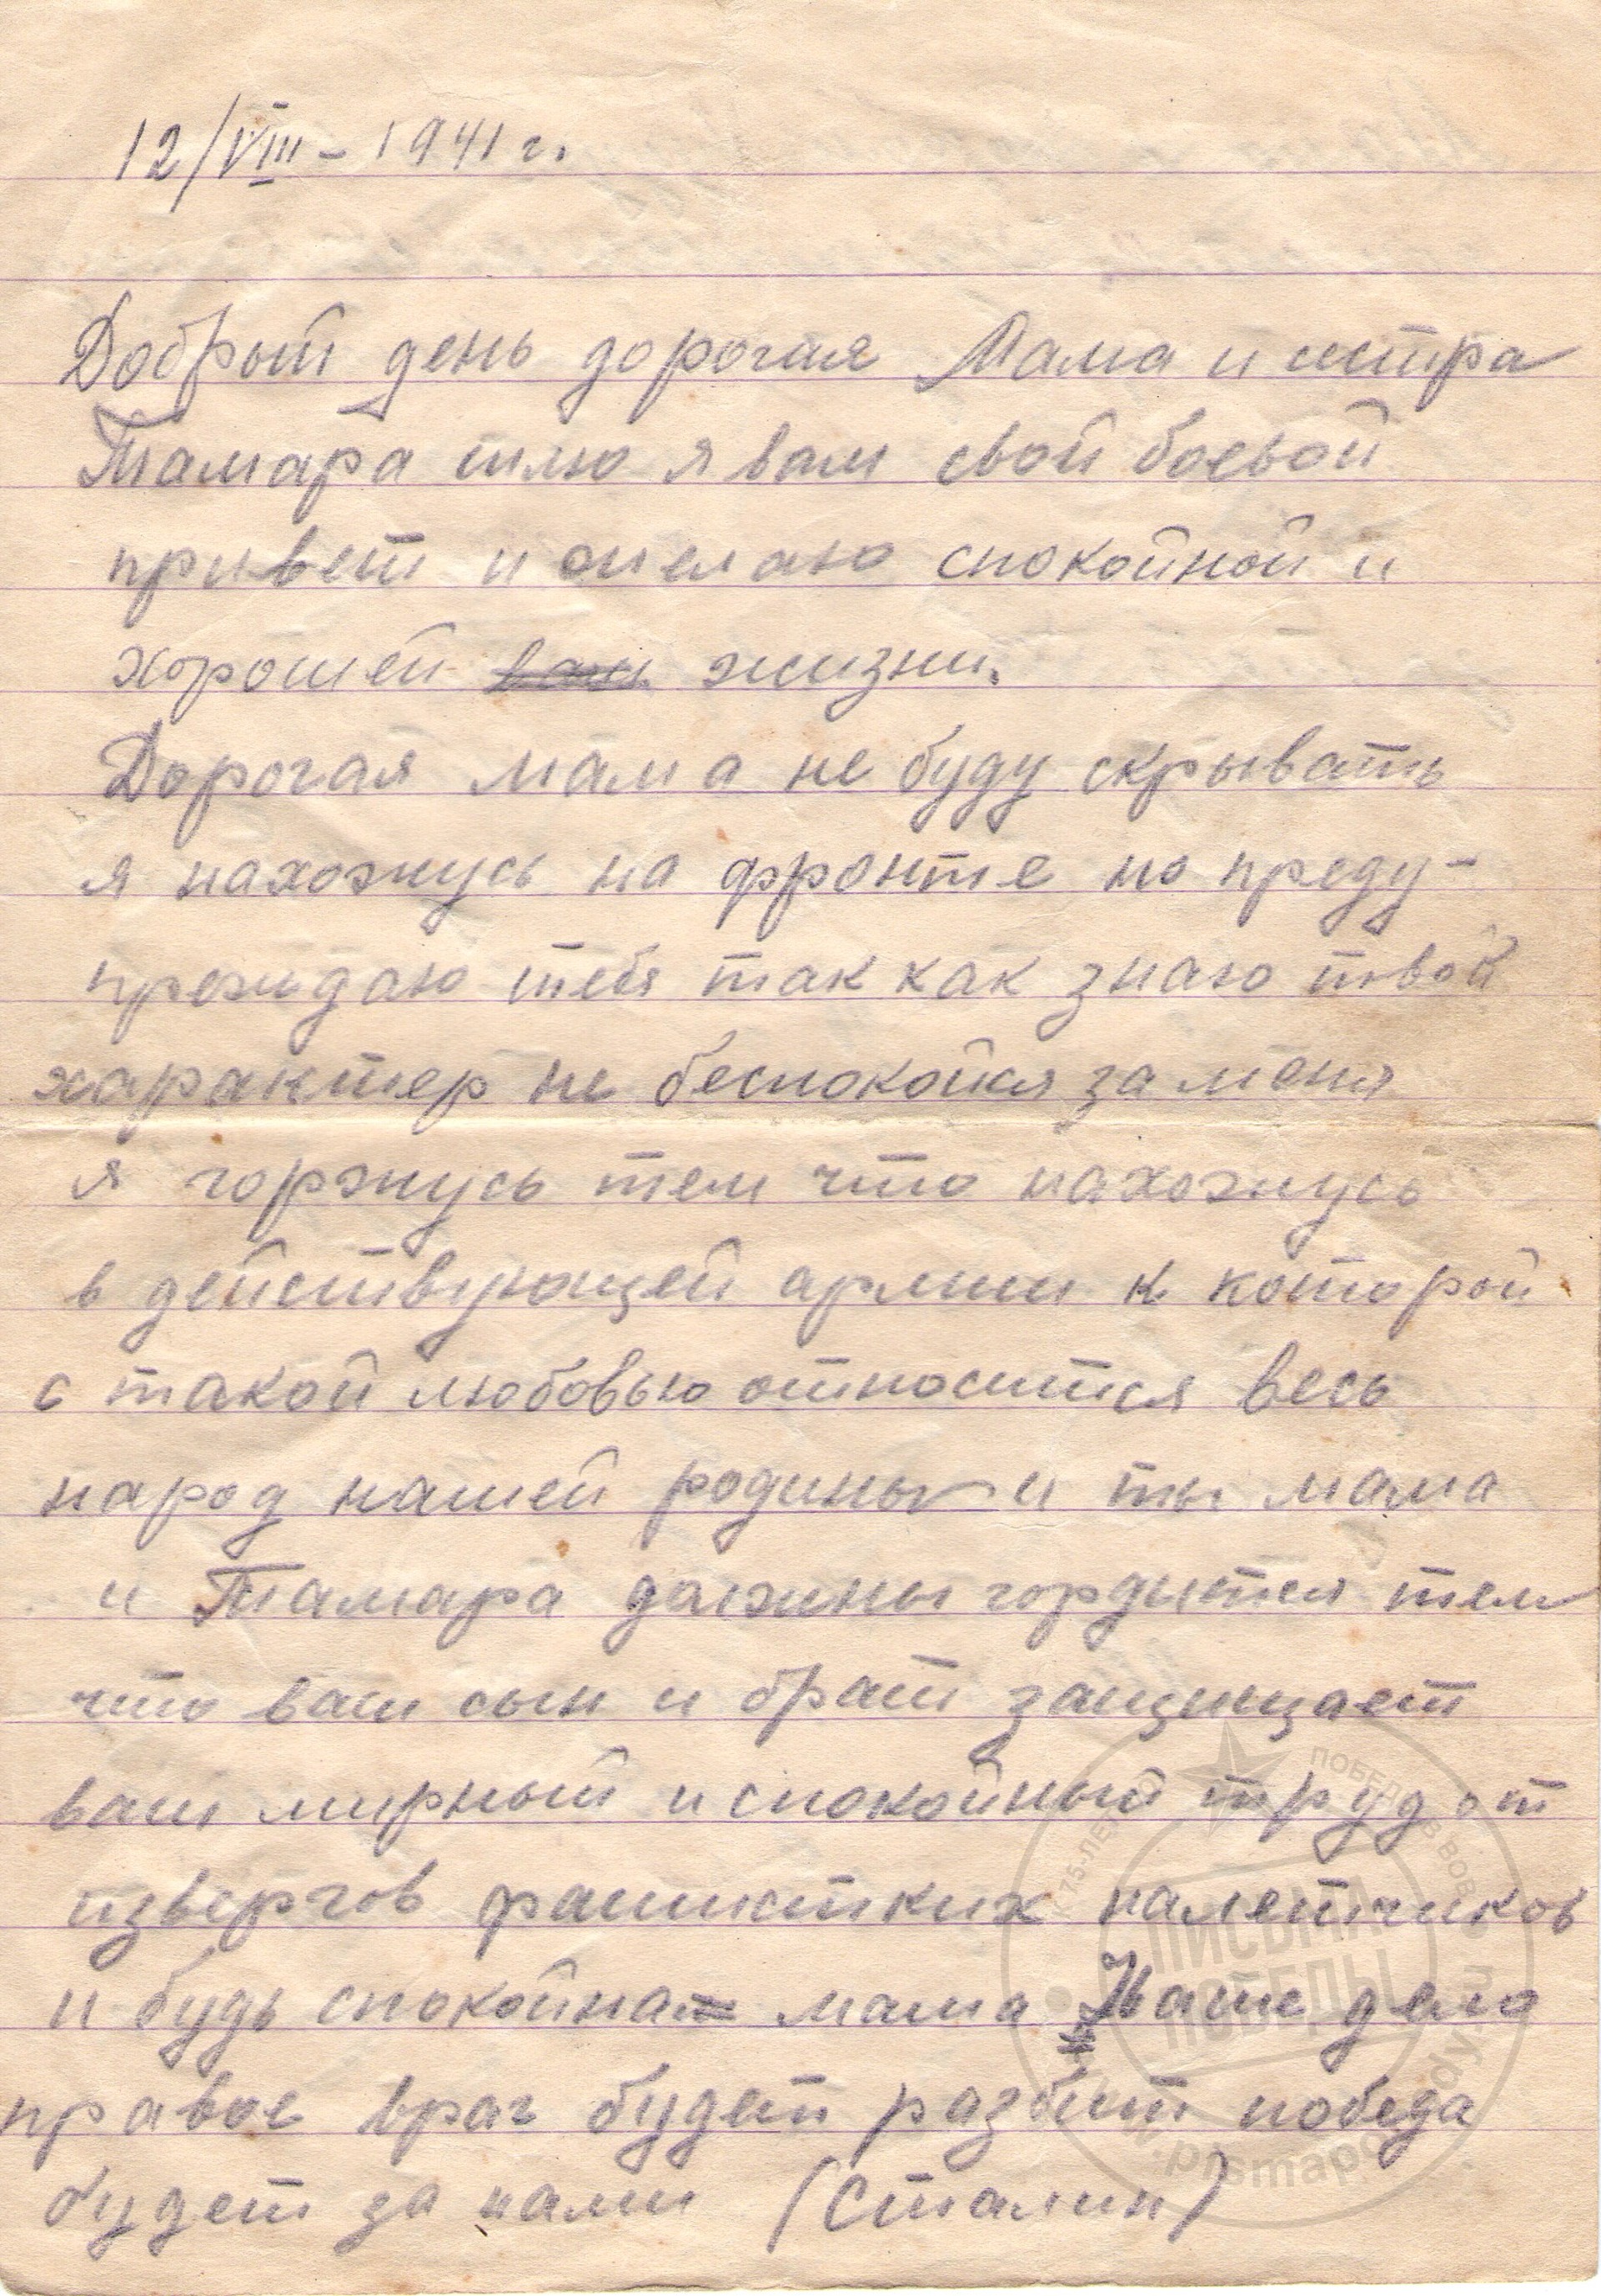 12/VIII – 1941 г.
Добрый день дорогая Мама и сестра
Тамара шлю я вам свой боевой
привет и желаю спокойной и
хорошей вам жизни.
Дорогая мама не буду скрывать
я нахожусь на фронте но преду-
преждаю тебя так как знаю твой
характер не беспокойся за меня
я горжусь тем что нахожусь
в действующей армии к которой
с такой любовью относится весь
народ нашей родины и ты мама
и Тамара должны гордится тем
что ваш сын и брат защищает
ваш мирный и спокойный труд от
извергов фашистких налетчиков
и будь спокойна мама Наше дело
правое враг будет разбит победа
будет за нами (Сталин)
К 75-ЛЕТИЮ ПОБЕДЫ В ВОВ
ПИСЬМА
ПОБЕДЫ
www.pismapobedy.ru